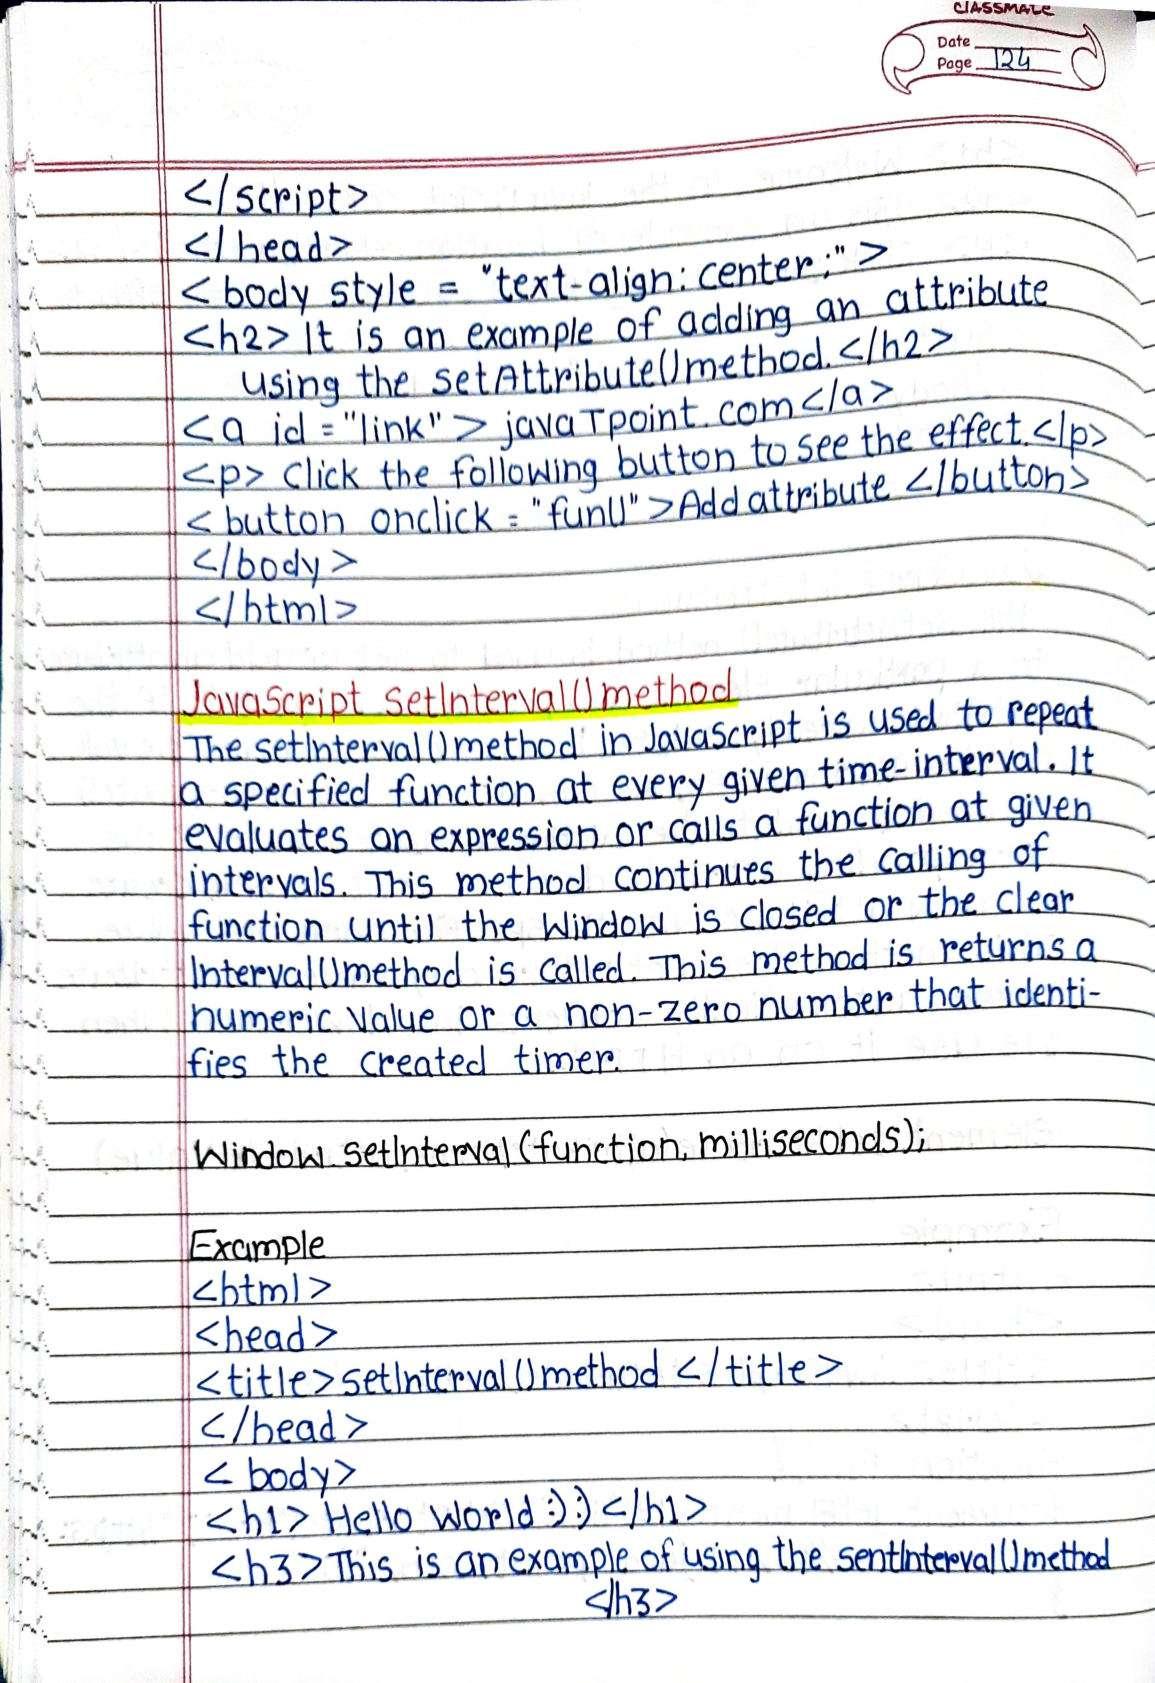 classmate
Date
Page 124
</script>
</head>
<body style = "text-align: center;">
<h2> It is an example of adding an attribute
using the setAttribute() method. </h2>
<a id = "link"> javaTpoint.com</a>
<p> Click the following button to see the effect. </p>
<button onclick = "fun()"> Add attribute </button>
</body>
</html>
JavaScript SetInterval() method
The setInterval() method in JavaScript is used to repeat
a specified function at every given time-interval. It
evaluates an expression or calls a function at given
intervals. This method continues the calling of
function until the window is closed or the clear
Interval() method is called. This method is returns a
numeric value or a non-zero number that identi-
fies the created timer.
Window.setInterval(function, milliseconds);
Example
<html>
<head>
<title> setInterval() method </title>
</head>
<body>
<h1> Hello World :) :) </h1>
<h3> This is an example of using the sentInterval() method
</h3>